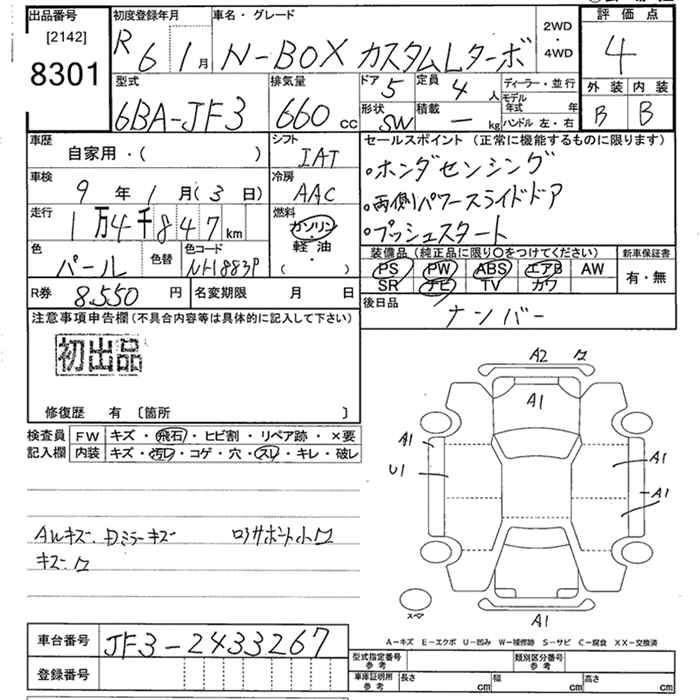 出品番号
[2142]
8301
初度登録年月
R 6 1月
車名・グレード
N-BOX カスタムLターボ
2WD
・
4WD
評価点
4
外装 内装
B B
型式
6BA-JF3
排気量
660 cc
ドア 5
形状 SW
定員 4 人
積載 — kg
ディーラー・並行
モデル年式 年
ハンドル 左・右
車歴
自家用・( )
シフト
IAT
セールスポイント (正常に機能するものに限ります)
・ホンダセンシング
・両側パワースライドドア
・プッシュスタート
車検
9年 1月(3日)
冷房
AAC
走行
1万4千847km
燃料
ガソリン・
軽油・
( )
色
パール
色替
色コード
NH883P
装備品 (純正品に限り〇をつけてください)
PS PW ABS エアB AW
SR ナビ TV カワ
新車保証書
有・無
R券 8,550 円
名変期限 月 日
後日品
ナンバー
注意事項申告欄(不具合内容等は具体的に記入して下さい)
初出品
修復歴 有 〔箇所 〕
検査員
記入欄
FW キズ・飛石・ヒビ割・リペア跡・×要
内装 キズ・汚レ・コゲ・穴・スレ・キレ・破レ
AWキズ. Dミラーキズ
キズ
A2
A1
A1
U1
A1
A1
A1
スペア
A－キズ E－エクボ U－凹み W－補修跡 S－サビ C－腐食 XX－交換済
車台番号
JF3-2433267
登録番号
型式指定番号
参考
類別区分番号
参考
車庫証明用
参考
長さ cm 幅 cm 高さ cm